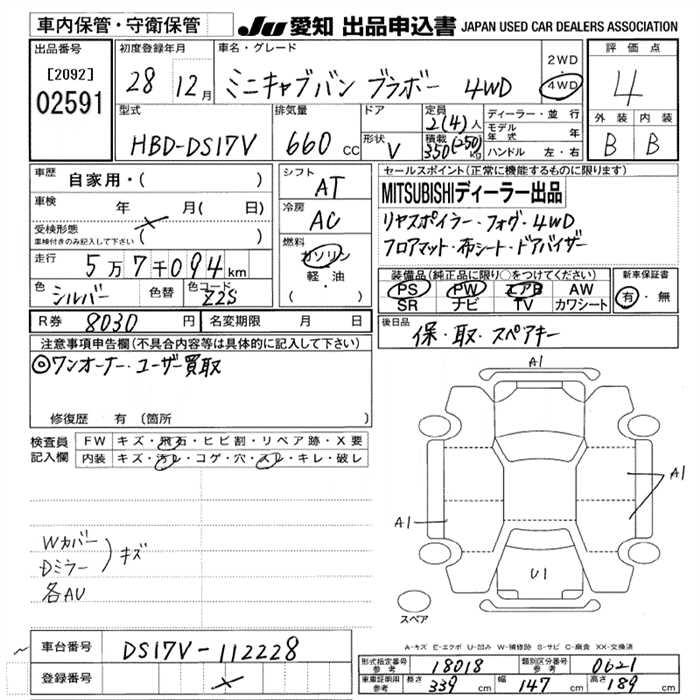 車内保管・守衛保管 JU 愛知 出品申込書 JAPAN USED CAR DEALERS ASSOCIATION
出品番号 初度登録年月 車名・グレード 評価点
[2092] 28 12月 ミニキャブバン ブラボー 4WD 2WD・4WD 4
02591
型式 排気量 ドア 定員 2(4)人 ディーラー・並行 外装 内装
HBD-DS17V 660cc 形状 V 積載 350(250)kg モデル年式 年 B B
ハンドル 左・右
車歴 自家用・( ) シフト AT セールスポイント(正常に機能するものに限ります)
車検 年 月( 日) 冷房 AC MITSUBISHIディーラー出品
受検形態 リヤスポイラー・フォグ・4WD
車検付きのみ記入して下さい 燃料 ガソリン フロアマット・布シート・ドアバイザー
走行 5万7千094km 軽・油
色 シルバー 色替 色コード Z2S ( ・ ) 装備品(純正品に限り○をつけてください) 新車保証書
PS PW エアB AW 有・無
SR ナビ TV カワシート
R券 8030円 名変期限 月 日 後日品
保・取・スペアキー
注意事項申告欄(不具合内容等は具体的に記入して下さい)
◎ワンオーナー・ユーザー買取
修復歴 有(箇所
検査員 FW キズ・飛石・ヒビ割・リペア跡・X要
記入欄 内装 キズ・汚レ・コゲ・穴・スレ・キレ・破レ
A1
A1
A1
Wカバー
Dミラー キズ
各AU
U1
スペア
A-キズ E-エクボ U-凹み W-補修跡 S-サビ C-腐食 XX-交換済
車台番号 DS17V-112228
登録番号
形式指定番号 参考 18018 類別区分番号 参考 0621
車庫証明用 参考 長さ 339cm 幅 147cm 高さ 189cm